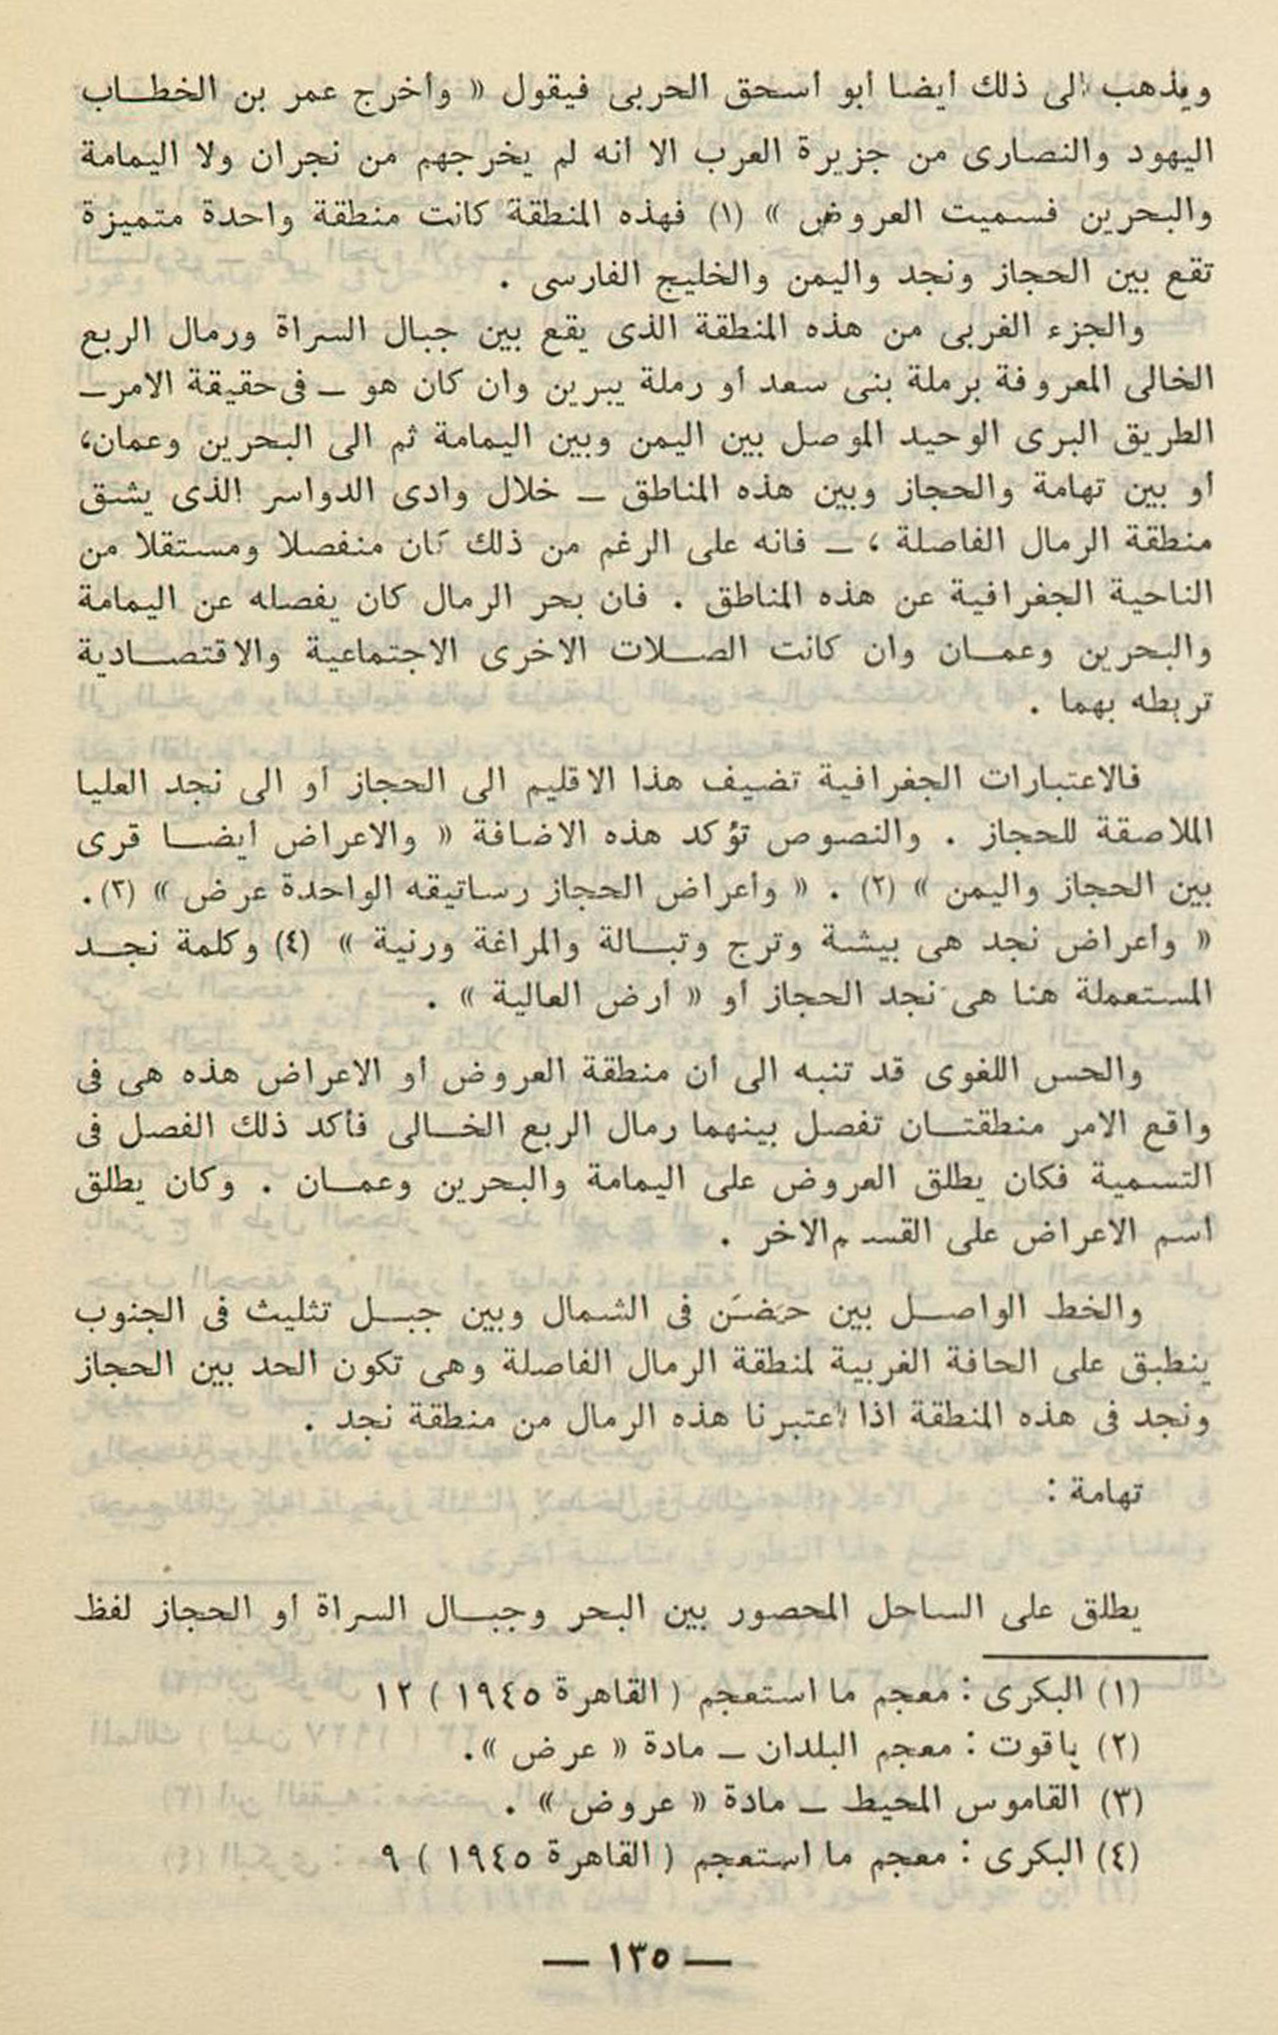 ويذهب الى ذلك أيضا أبو أسحق الحربى فيقول « وأخرج عمر بن الخطاب
اليهود والنصارى من جزيرة العرب الا أنه لم يخرجهم من نجران ولا اليمامة
والبحرين فسميت العروض » (١) فهذه المنطقة كانت منطقة واحدة متميزة
تقع بين الحجاز ونجد واليمن والخليج الفارسى .
والجزء الغربى من هذه المنطقة الذى يقع بين جبال السراة ورمال الربع
الخالى المعروفة برملة بنى سعد أو رملة يبرين وان كان هو ــ فى حقيقة الامر ــ
الطريق البرى الوحيد الموصل بين اليمن وبين اليمامة ثم الى البحرين وعمان،
أو بين تهامة والحجاز وبين هذه المناطق ــ خلال وادى الدواسر الذى يشق
منطقة الرمال الفاصلة ، ــ فانه على الرغم من ذلك كان منفصلا ومستقلا من
الناحية الجغرافية عن هذه المناطق . فان بحر الرمال كان يفصله عن اليمامة
والبحرين وعمان وان كانت الصلات الاخرى الاجتماعية والاقتصادية
تربطه بهما .
فالاعتبارات الجغرافية تضيف هذا الاقليم الى الحجاز أو الى نجد العليا
الملاصقة للحجاز . والنصوص تؤكد هذه الاضافة « والاعراض أيضا قرى
بين الحجاز واليمن » (٢) . « وأعراض الحجاز رساتيقه الواحدة عرض » (٣).
« وأعراض نجد هى بيشة وترج وتبالة والمراغة ورنية » (٤) وكلمة نجد
المستعملة هنا هى نجد الحجاز أو « أرض العالية » .
والحس اللغوى قد تنبه الى أن منطقة العروض أو الاعراض هذه هى فى
واقع الامر منطقتان تفصل بينهما رمال الربع الخالى فأكد ذلك الفصل فى
التسمية فكان يطلق العروض على اليمامة والبحرين وعمان . وكان يطلق
اسم الاعراض على القسم الاخر .
والخط الواصل بين حَضَن فى الشمال وبين جبل تثليث فى الجنوب
ينطبق على الحافة الغربية لمنطقة الرمال الفاصلة وهى تكون الحد بين الحجاز
ونجد فى هذه المنطقة اذا اعتبرنا هذه الرمال من منطقة نجد .
تهامة :
يطلق على الساحل المحصور بين البحر وجبال السراة أو الحجاز لفظ
(١) البكرى : معجم ما استعجم ( القاهرة ١٩٤٥ ) ١٢
(٢) ياقوت : معجم البلدان ــ مادة « عرض ».
(٣) القاموس المحيط ــ مادة « عروض » .
(٤) البكرى : معجم ما استعجم ( القاهرة ١٩٤٥ ) ٩
— ١٣٥ —